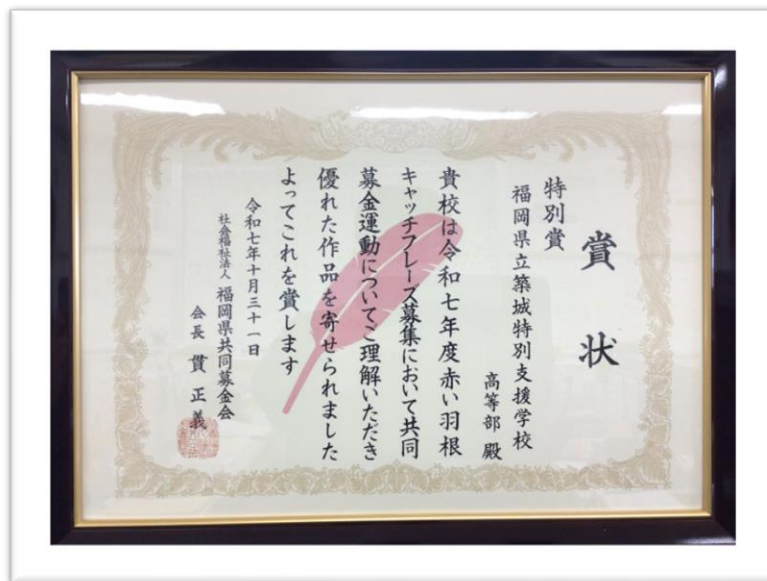 賞状
特別賞
福岡県立築城特別支援学校
高等部 殿
貴校は令和七年度赤い羽根
キャッチフレーズ募集において共同
募金運動についてご理解いただき
優れた作品を寄せられました
よってこれを賞します
令和七年十月三十一日
社会福祉法人 福岡県共同募金会
会長 貫正義